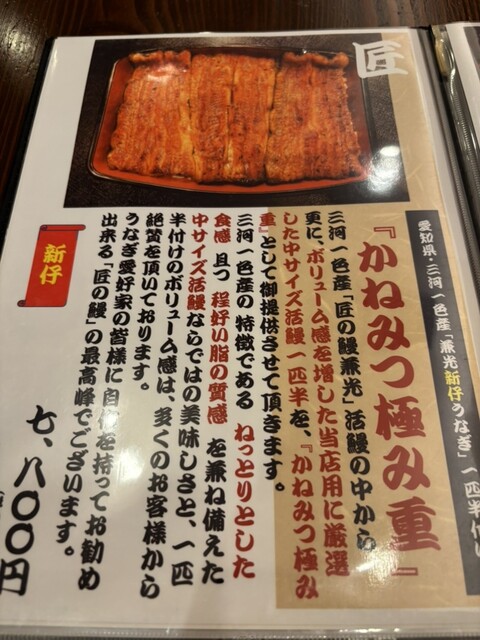 愛知県・三河一色産「兼光新仔うなぎ」一匹半付
『かねみつ極み重』
三河一色産「匠の鰻兼光」活鰻の中から
更に、ボリューム感を増した当店用に厳選
した中サイズ活鰻一匹半を、『かねみつ極み
重』として御提供させて頂きます。
三河一色産の特徴である ねっとりとした
食感 且つ 程好い脂の質感 を兼ね備えた
中サイズ活鰻ならではの美味しさと、一匹
半付けのボリューム感は、多くのお客様から
絶賛を頂いております。
うなぎ愛好家の皆様に自信を持ってお勧め
出来る「匠の鰻」の最高峰でございます。
七、八〇〇円
新仔
匠